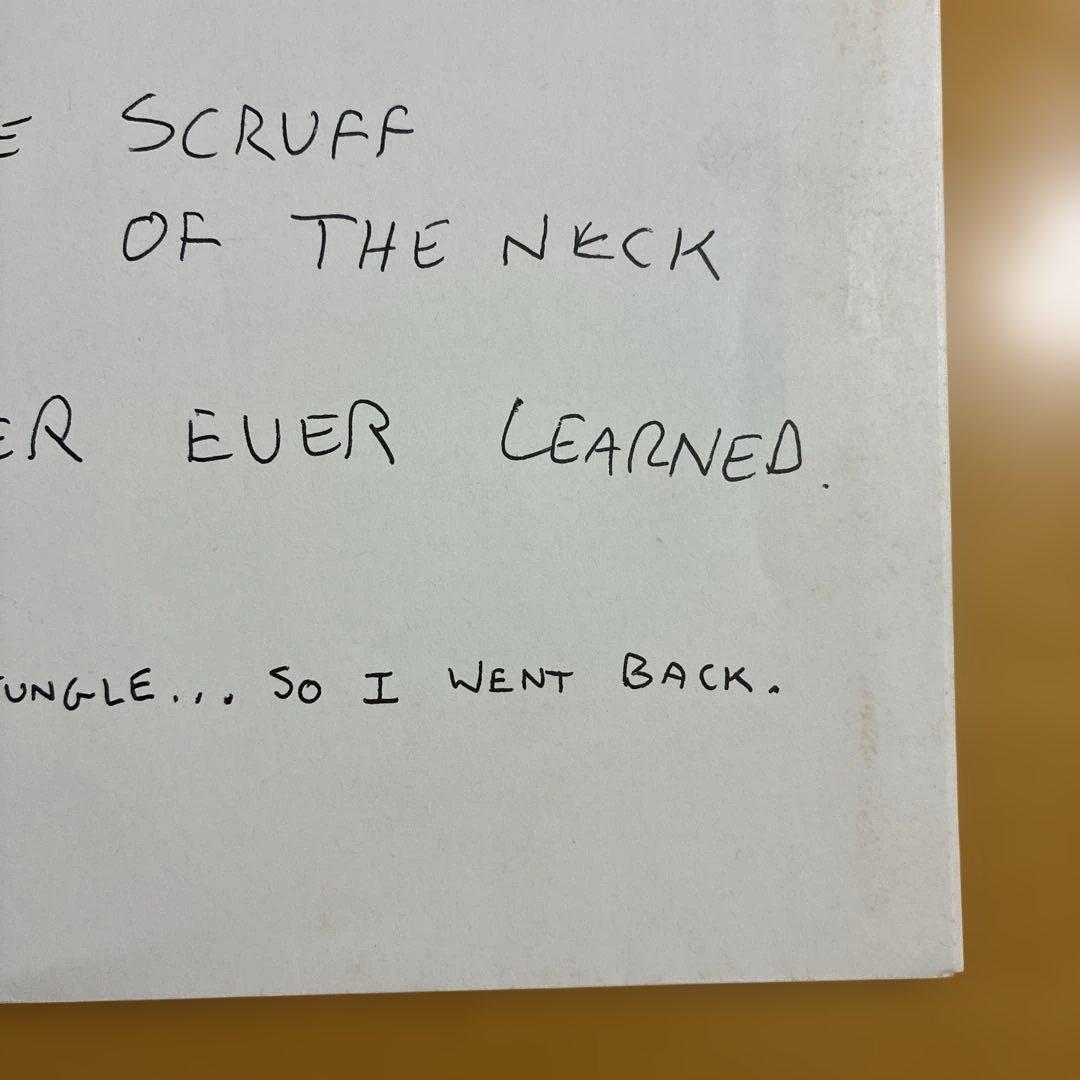 E SCRUFF
OF THE NECK
ER EVER LEARNED.
JUNGLE... SO I WENT BACK.